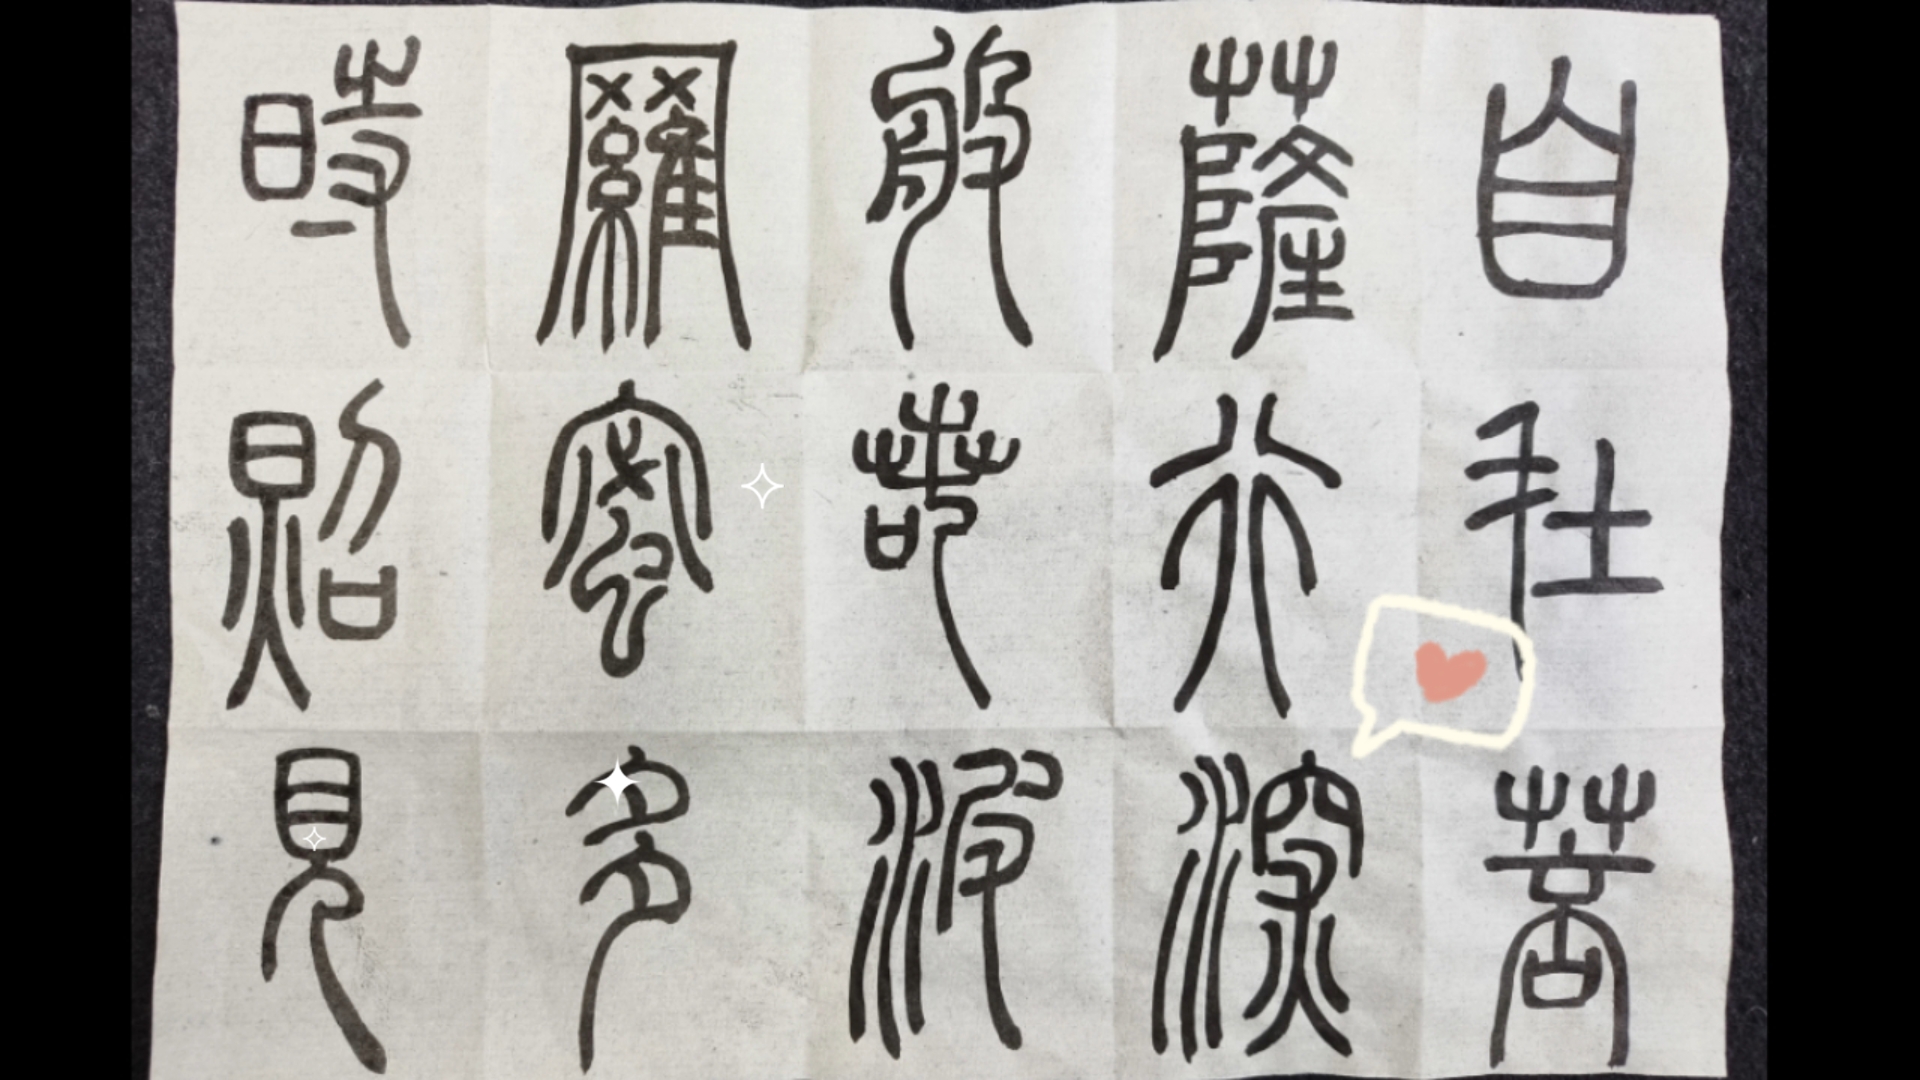 自在菩
薩行深
般若波
羅蜜多
時照見